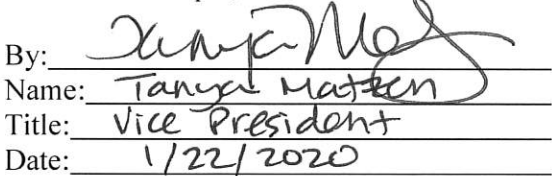 By: Tanya
Name: Tanya Matzen
Title: Vice President
Date: 1/22/2020